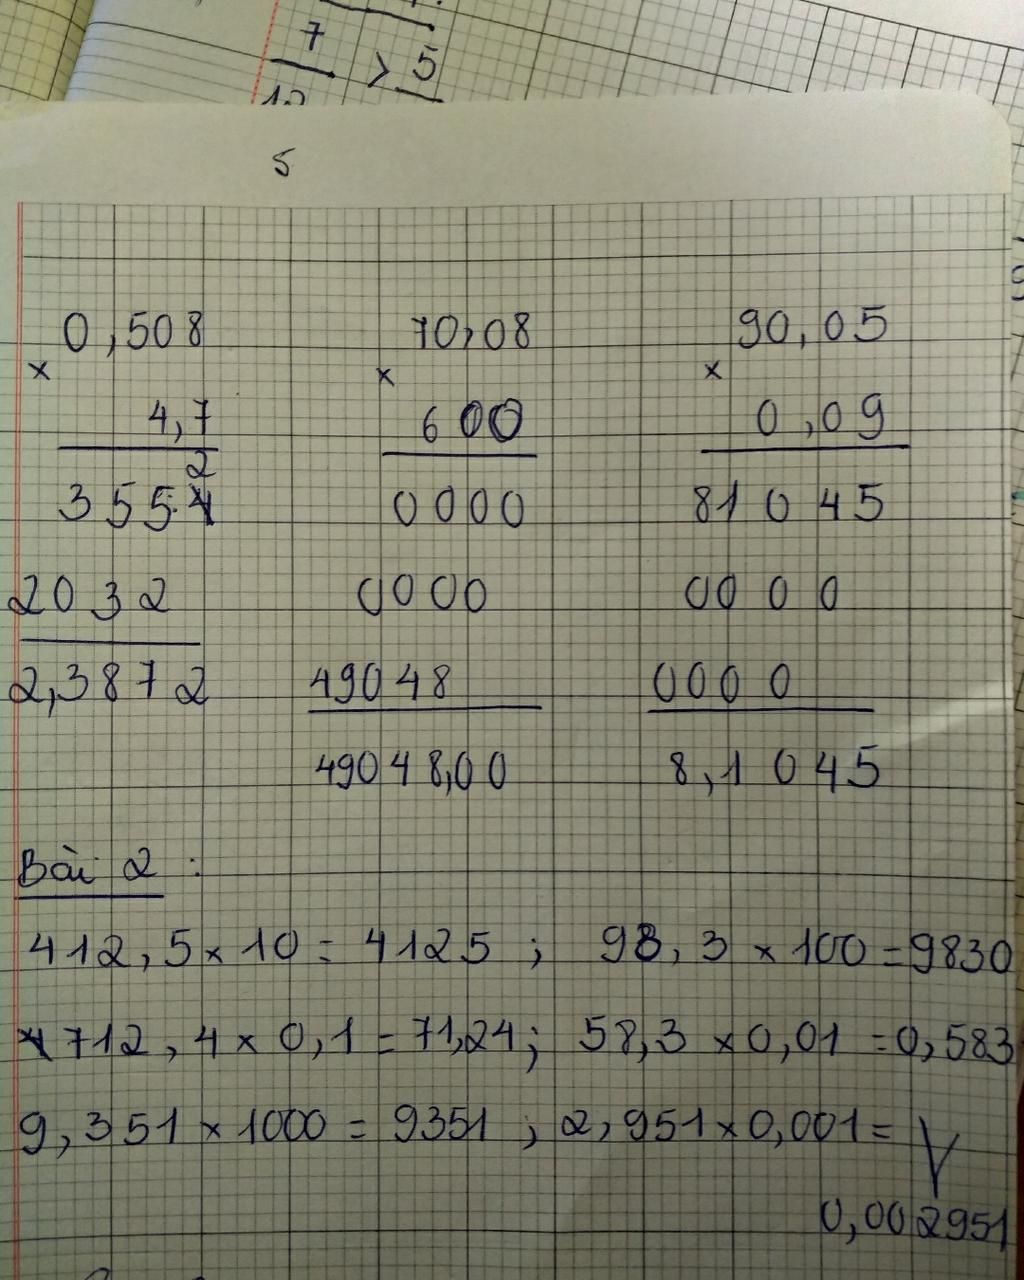 7 > 5
10
5
0,508 70,08 90,05
× × ×
4,7 600 0,09
2
3554 0000 81045
2032 0000 0000
2,3872 49048 0000
49048,00 8,1045
Bài 2 :
412,5 × 10 = 4125 ; 98,3 × 100 = 9830
712,4 × 0,1 = 71,24 ; 58,3 × 0,01 = 0,583
9,351 × 1000 = 9351 ; 2,951 × 0,001 =
0,002951